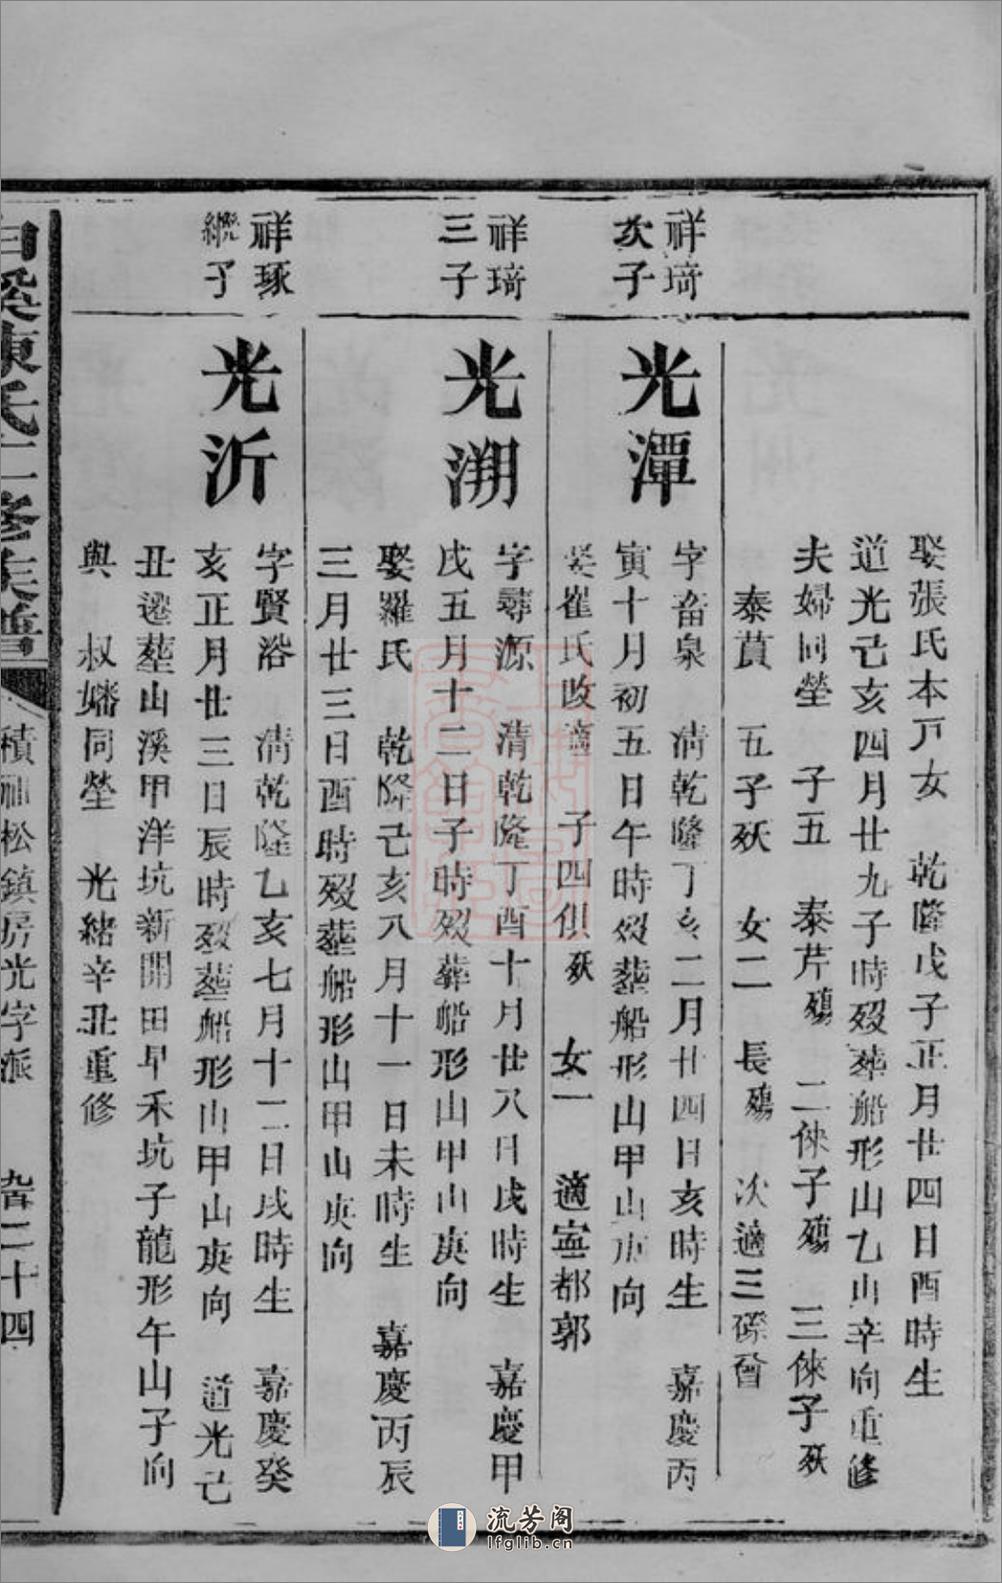 娶張氏本戸女　乾隆戊子正月廿四日酉時生
道光己亥四月廿九子時歿葬船形山乙山辛向重修
夫婦同塋　子五　泰芹殤　二倈子殤　三倈子殀
泰蒷　五子殀　女二　長殤　次適三磜曾
祥琦
次子
光潭
字畜泉　清乾隆丁亥二月廿四日亥時生　嘉慶丙
寅十月初五日午時歿葬船形山甲山庚向
娶崔氏改適　子四俱殀　女一　適寧都郭
祥琦
三子
光溯
字尋源　清乾隆丁酉十月廿八日戌時生　嘉慶甲
戌五月十二日子時歿葬船形山甲山庚向
娶羅氏　乾隆己亥八月十一日未時生　嘉慶丙辰
三月廿三日酉時歿葬船形山甲山庚向
祥琢
繼子
光沂
字賢浴　清乾隆乙亥七月十二日戌時生　嘉慶癸
亥正月廿三日辰時歿葬船形山甲山庚向　道光己
丑遷葬山溪甲洋坑新開田早禾坑子龍形午山子向
與　叔嬸同塋　光緒辛丑重修
白溪陳氏二修族譜
積祉松鎮房光字派　二十四
流芳阁
lfglib.cn